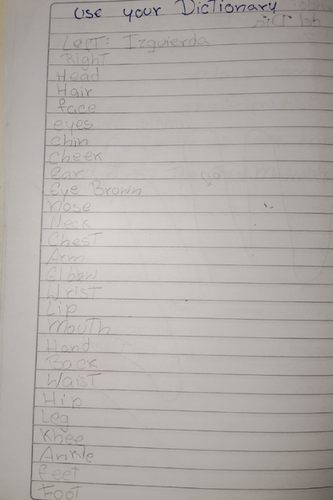 Use your Dictionary
Left: Izguierda
Right
Head
Hair
face
eyes
chin
cheek
ear
Eye Brown
nose
Neck
Chest
Arm
Elbow
Wrist
Lip
mouth
Hand
Back
Waist
Hip
Leg
Khee
Ankle
feet
Foot